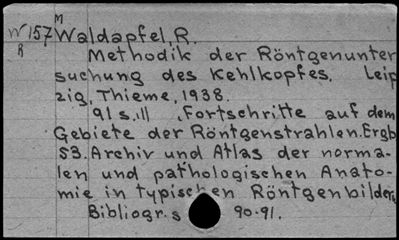 M
W157 Waldapfel, R.
R
Methodik der Röntgenunter
suchung des Kehlkopfes. Leip
zig, Thieme, 1938.
91 s. ill, Fortschritte auf dem
Gebiete der Röntgenstrahlen. Ergb
53. Archiv und Atlas der norma-
len und pathologischen Anato-
mie in typischen Röntgenbildern
Bibliogr. s 90-91.